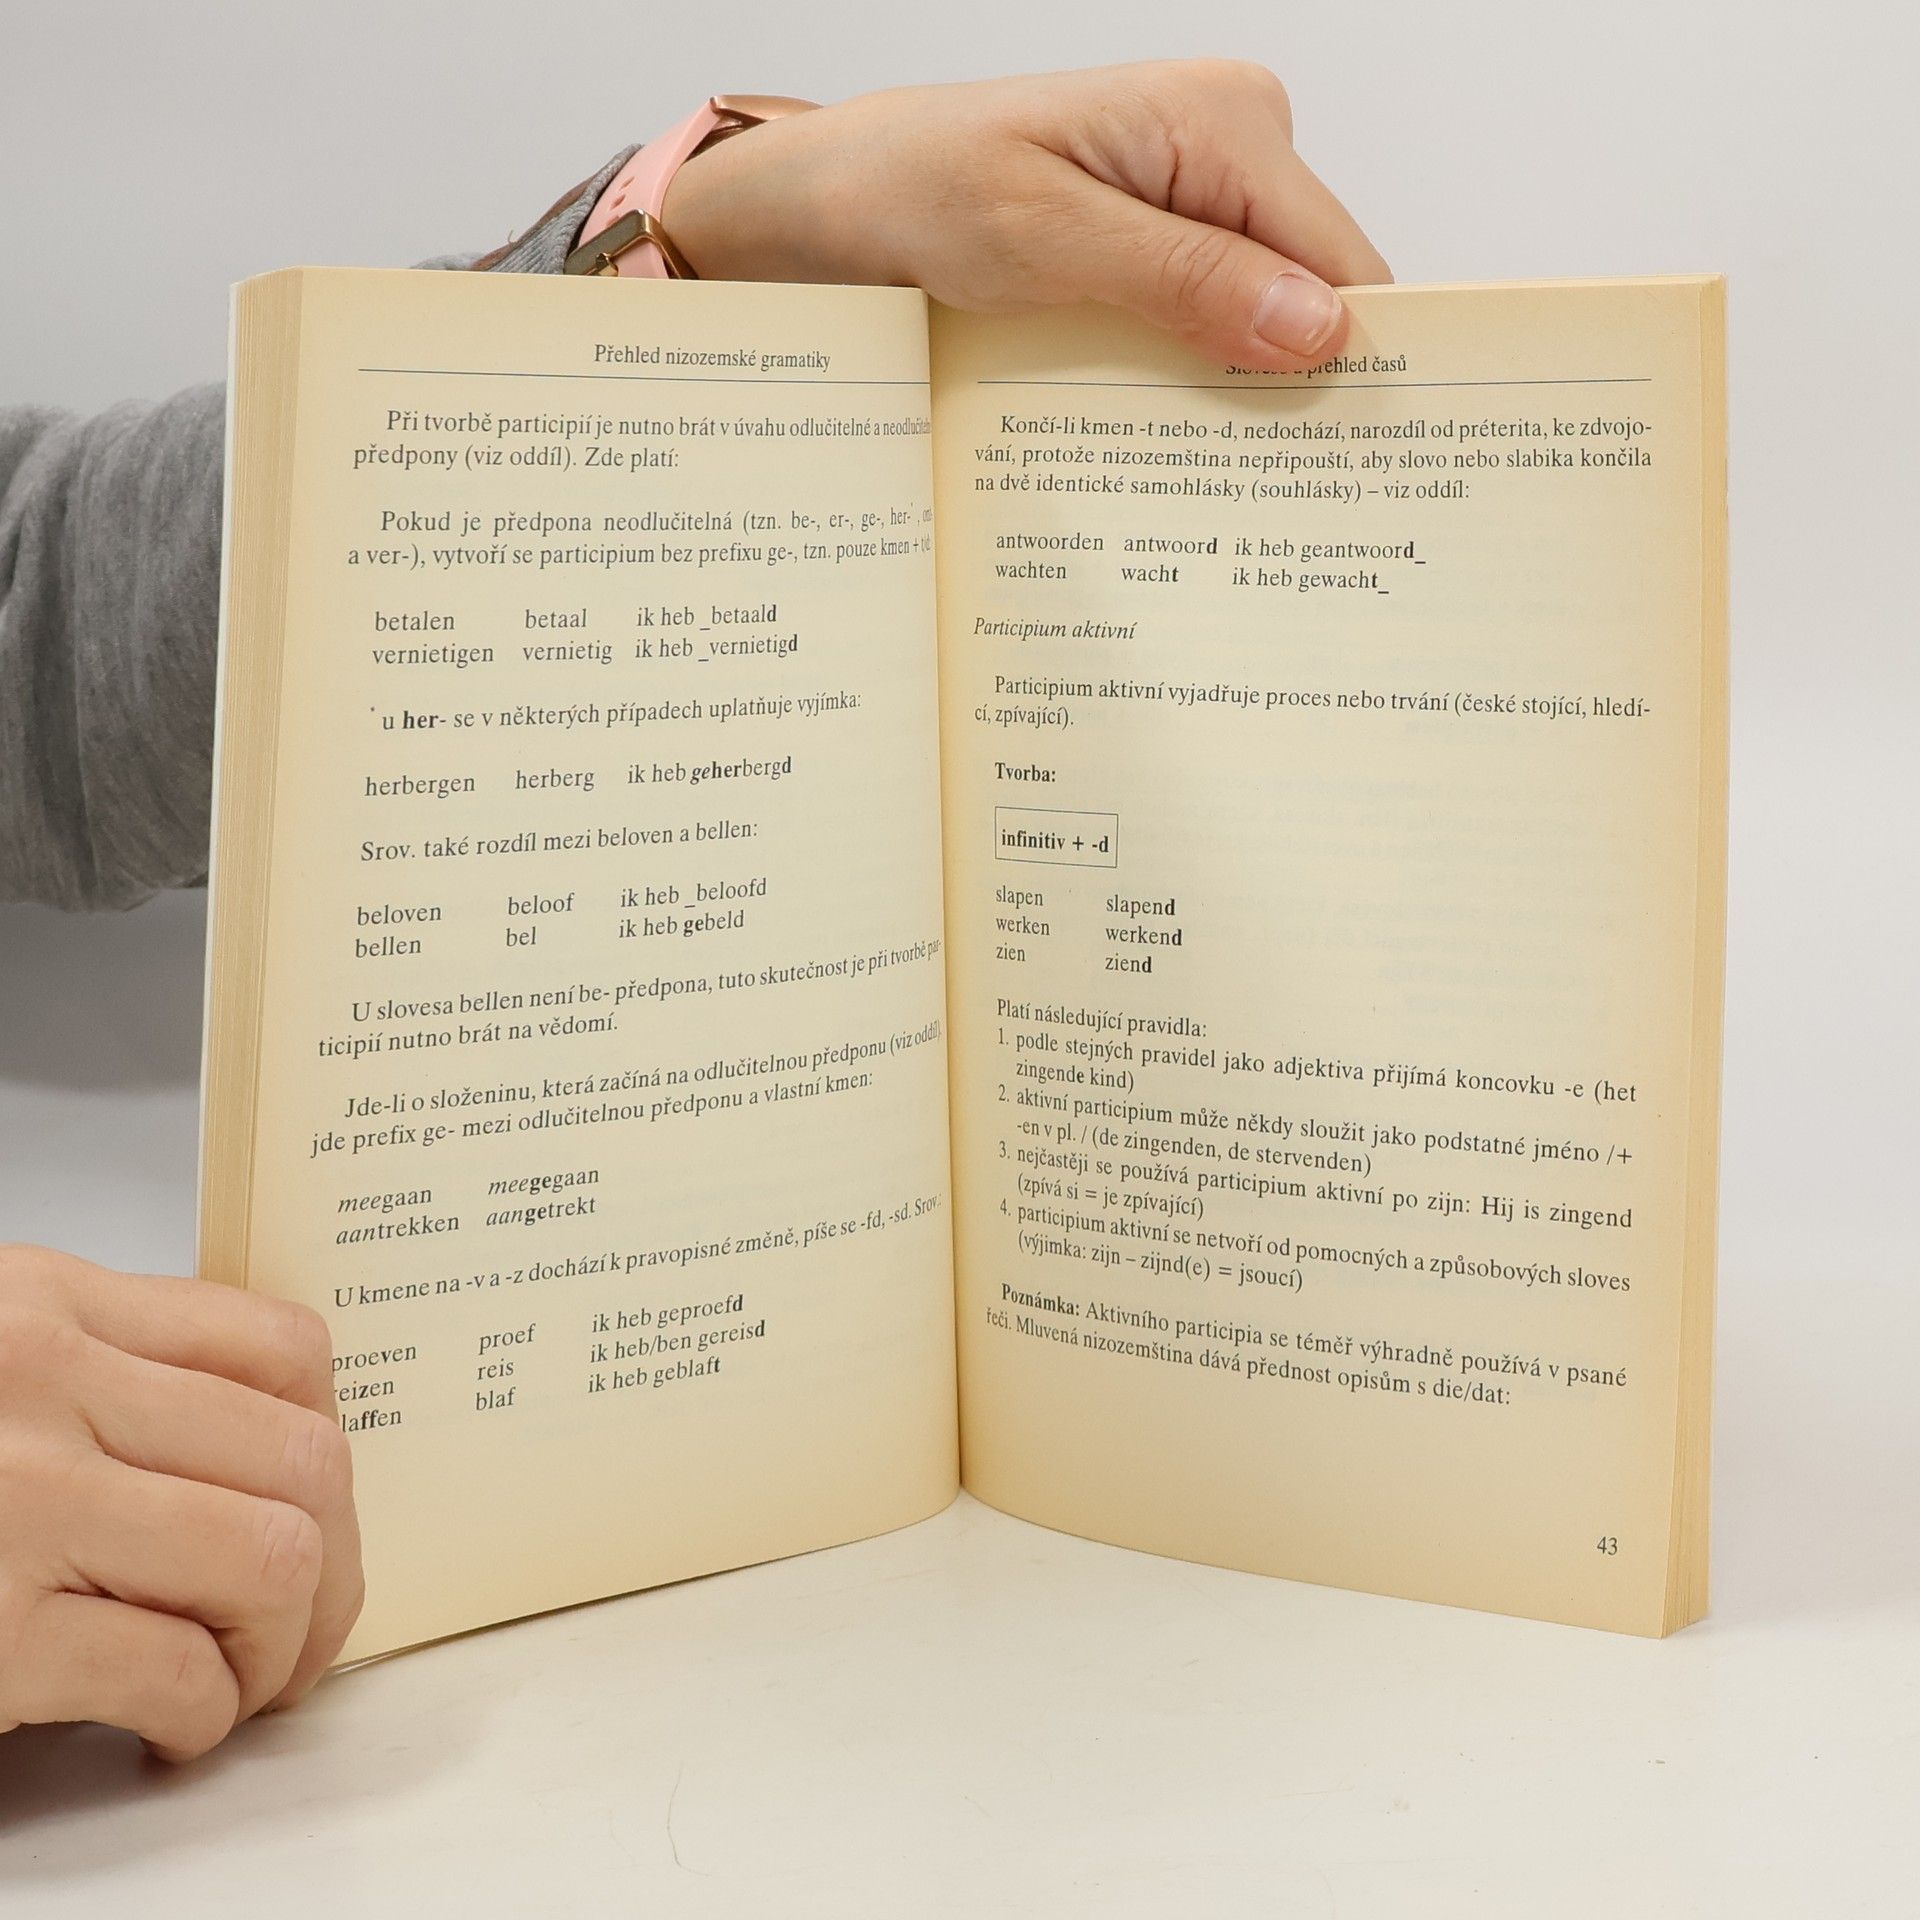 Přehled nizozemské gramatiky
Při tvorbě participií je nutno brát v úvahu odlučitelné a
předpony (viz oddíl). Zde platí:
Pokud je předpona neodlučitelná (tzn. be-, er-, ge-, her-*,
a ver-), vytvoří se participium bez prefixu ge-, tzn. pouze kmen +
betalen betaal ik heb _betaald
vernietigen vernietig ik heb _vernietigd
* u her- se v některých případech uplatňuje vyjímka:
herbergen herberg ik heb geherbergd
Srov. také rozdíl mezi beloven a bellen:
beloven beloof ik heb _beloofd
bellen bel ik heb gebeld
U slovesa bellen není be- předpona, tuto skutečnost je při tvorbě par-
ticipií nutno brát na vědomí.
Jde-li o složeninu, která začíná na odlučitelnou předponu (viz oddíl),
jde prefix ge- mezi odlučitelnou předponu a vlastní kmen:
meegaan meegegaan
aantrekken aangetrekt
U kmene na -v a -z dochází k pravopisné změně, píše se -fd, -sd. Srov.:
proeven proef ik heb geproefd
reizen reis ik heb/ben gereisd
laffen blaf ik heb geblaft
přehled časů
Končí-li kmen -t nebo -d, nedochází, narozdíl od préterita, ke zdvojo-
vání, protože nizozemština nepřipouští, aby slovo nebo slabika končila
na dvě identické samohlásky (souhlásky) – viz oddíl:
antwoorden antwoord ik heb geantwoord_
wachten wacht ik heb gewacht_
Participium aktivní
Participium aktivní vyjadřuje proces nebo trvání (české stojící, hledí-
cí, zpívající).
Tvorba:
infinitiv + -d
slapen slapend
werken werkend
zien ziend
Platí následující pravidla:
1. podle stejných pravidel jako adjektiva přijímá koncovku -e (het
zingende kind)
2. aktivní participium může někdy sloužit jako podstatné jméno /+
-en v pl. / (de zingenden, de stervenden)
3. nejčastěji se používá participium aktivní po zijn: Hij is zingend
(zpívá si = je zpívající)
4. participium aktivní se netvoří od pomocných a způsobových sloves
(výjimka: zijn – zijnd(e) = jsoucí)
Poznámka: Aktivního participia se téměř výhradně používá v psané
řeči. Mluvená nizozemština dává přednost opisům s die/dat:
43